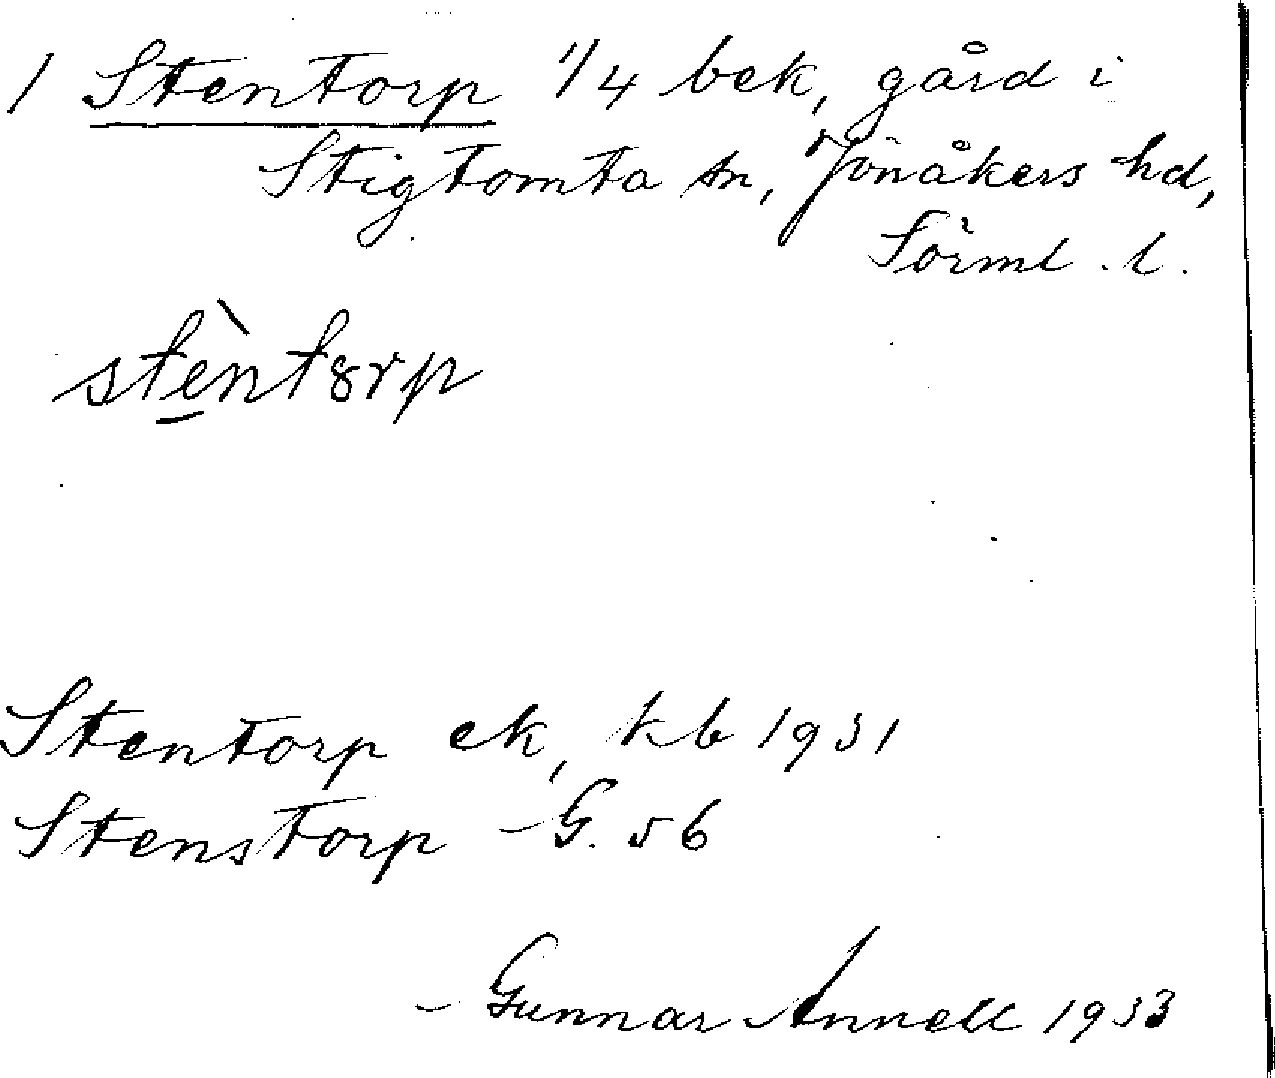 1 Stentorp 1/4 bek, gård i
Stigtomta sn, Jönåkers hd,
Sörml. l.
stèntørp
Stentorp ek, kb 1931
Stenstorp G. 56
Gunnar Annell 1933